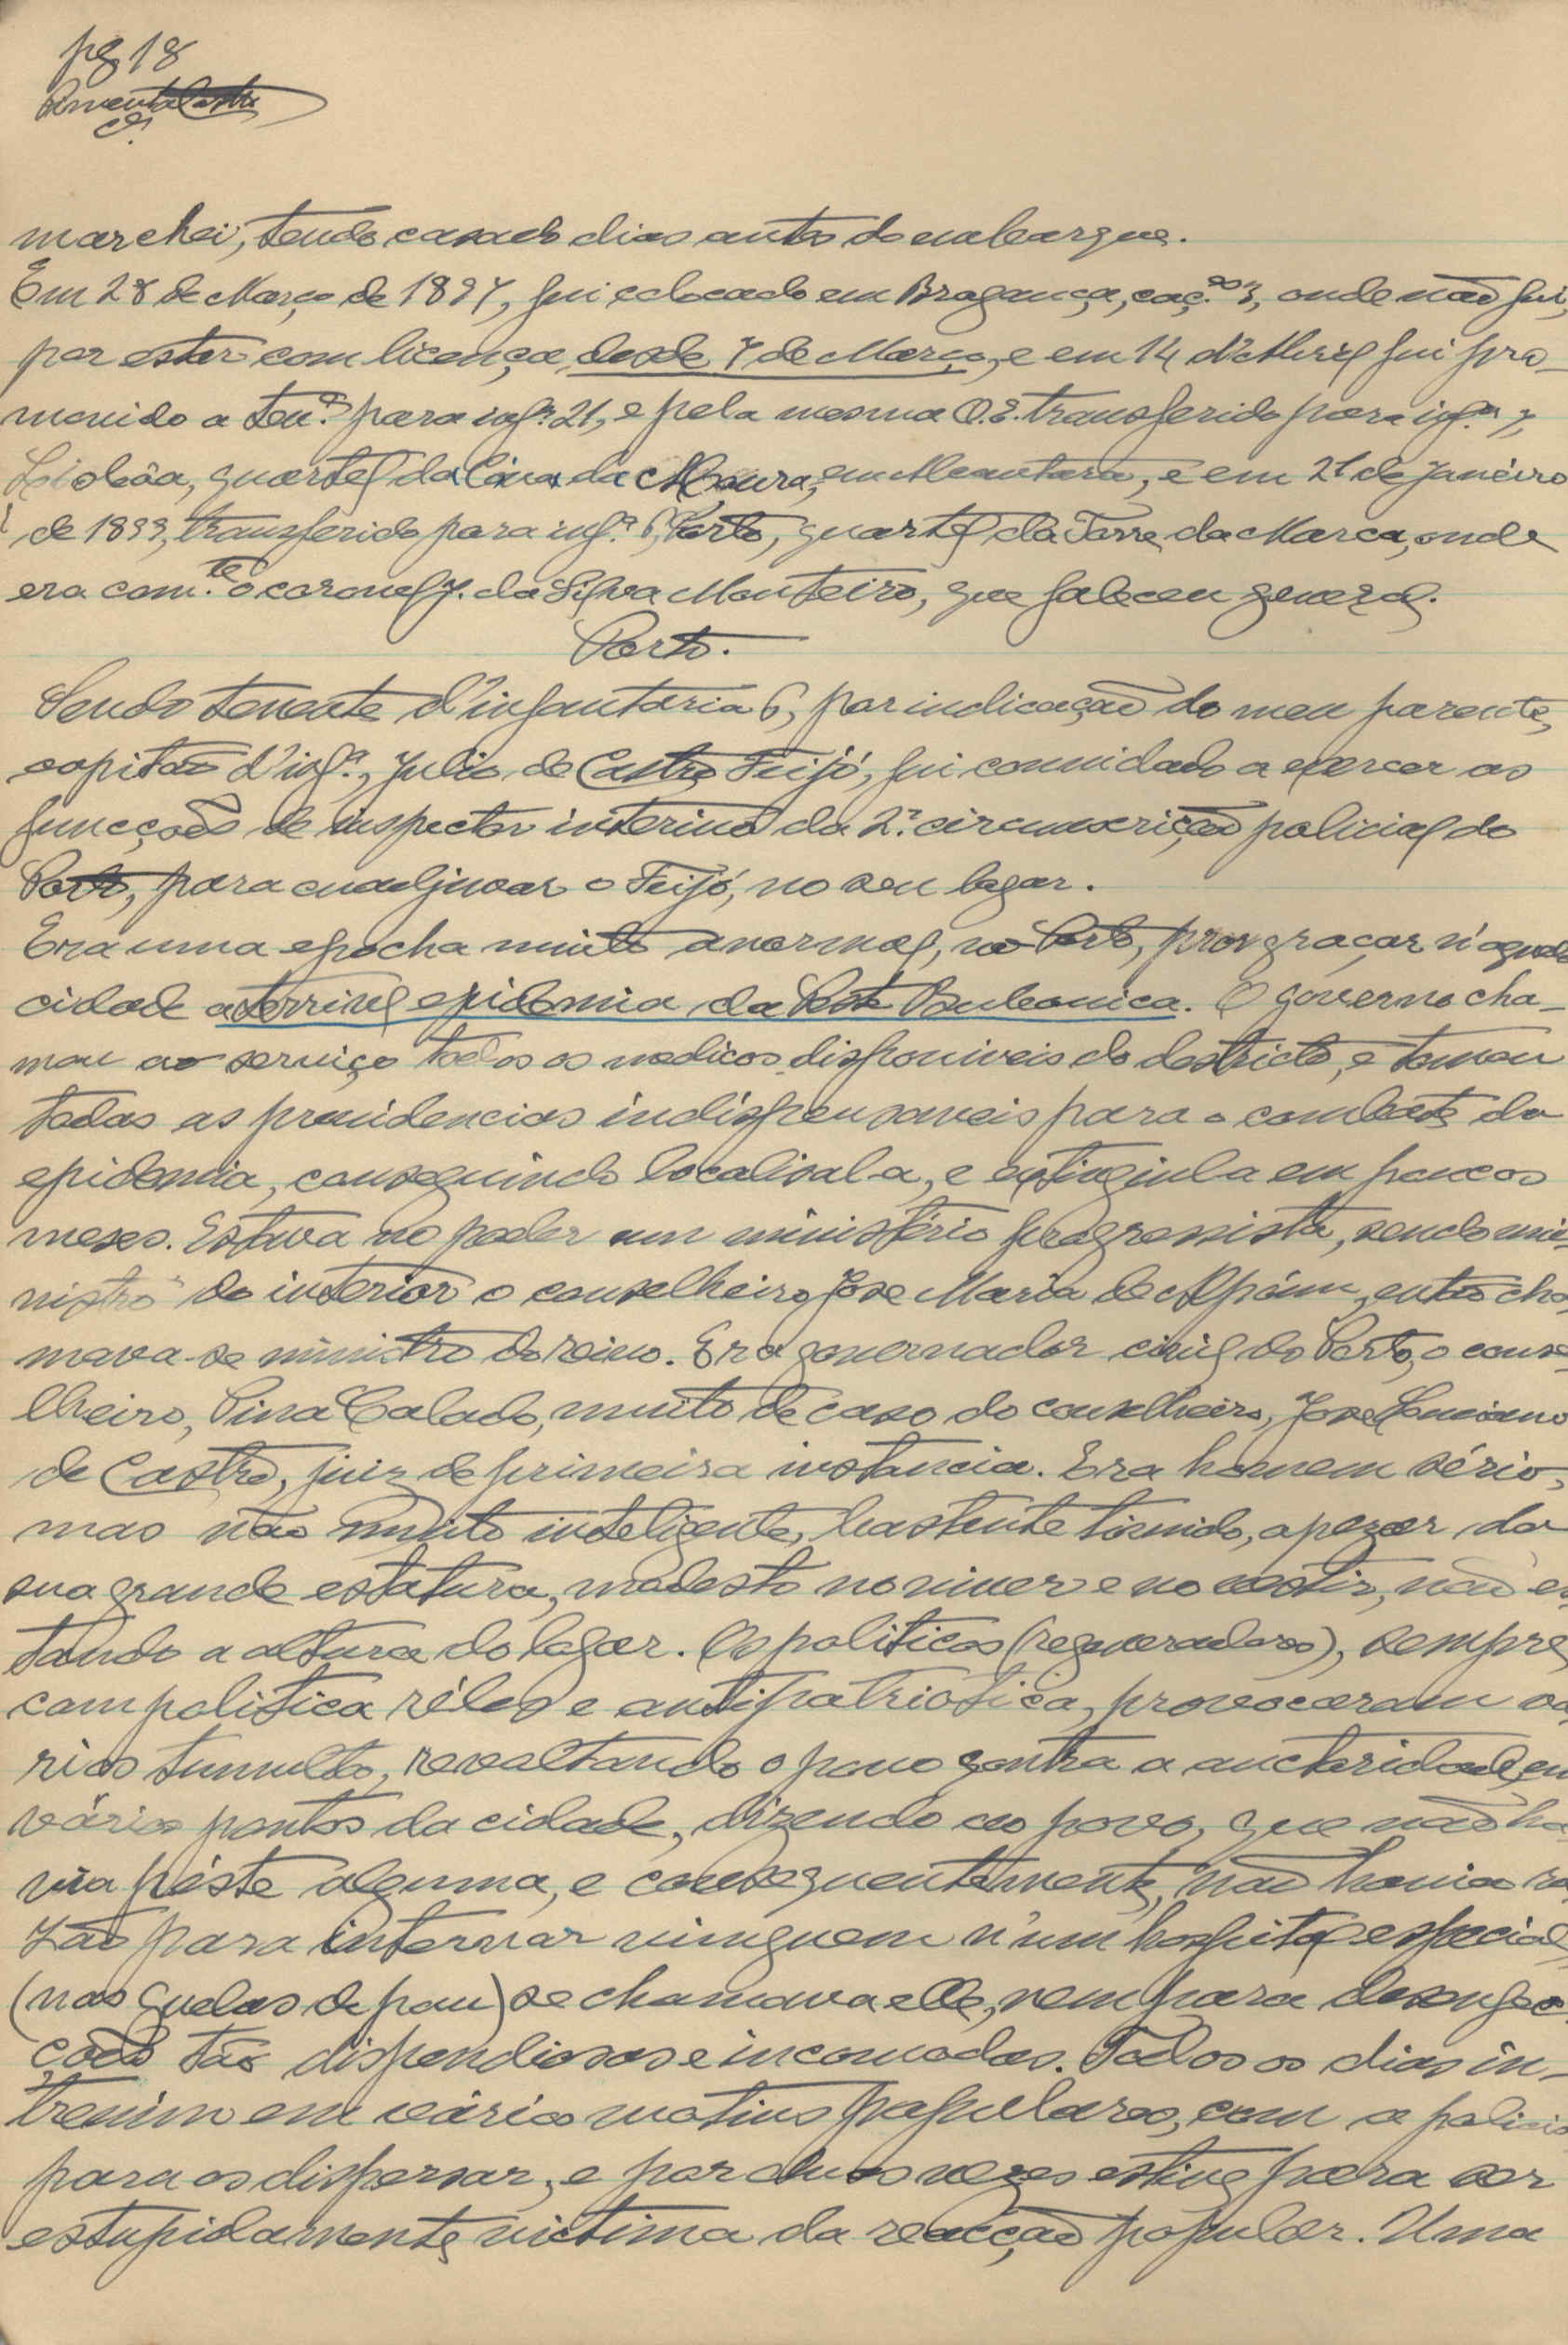 pg 18
Pimenta Castro
marchei, tendo casado dias antes do embarque.
Em 28 de Março de 1897, fui colocado em Bragança, caç.es 3, onde não fui,
por estar com licença desde 7 de Março, e em 14 d'Abril fui pro-
movido a ten.e para inf.a 21, e pela mesma O.E. transferido para inf.a 7,
Lisbôa, quartel da Cova da Moura, em Alcantara, e em 21 de Janeiro
de 1899, transferido para inf.a 6, Porto, quartel da Torre da Marca, onde
era com.te o coronel J. da Silva Monteiro, que faleceu general.
Porto.
Sendo tenente d'infantaria 6, por indicação do meu parente,
capitão d'inf.a, Julio de Castro Feijó, fui convidado a exercer as
funcções de inspector interino da 2.a circunscrição policial do
Porto, para coadjuvar o Feijó, no seu logar.
Era uma epocha muito anormal, no Porto, por graçar n'aquela
cidade a terrivel epidemia da Peste Bubonica. O governo cha-
mou ao serviço todos os medicos disponiveis do destricto, e tomou
todas as providencias indispensaveis para o combate da
epidemia, conseguindo localisal-a, e extinguil-a em poucos
meses. Estava no poder um ministério progressista, sendo mi-
nistro do interior o conselheiro José Maria de Alpóim, então cha
mava-se ministro do reino. Era governador civil do Porto, o conse
lheiro, Pina Calado, muito de casa do conselheiro, José Luciano
de Castro, juiz de primeira instancia. Era homem sério,
mas não muito inteligente, bastante tímido, apezar da
sua grande estatura, modesto no viver e no vestir, não es
tando a altura do logar. Os politicos (regeneradores), sempre
com politica réles e antipatriotica, provocaram va
rios tumultos, revoltando o povo contra a auctoridade, em
vários pontos da cidade, dizendo ao povo, que não ha
via péste alguma, e consequentemente, não havia ra
zão para internar ninguem n'um hospital especial,
(nas Guelas de pau) se chamava elle, nem para desinfec
ções tão dispendiosas e incomodas. Todos os dias in-
trevim em vários motins populares, com a policia
para os dispersar, e por duas vezes estive para ser
estupidamente victima da reacção popular. Uma